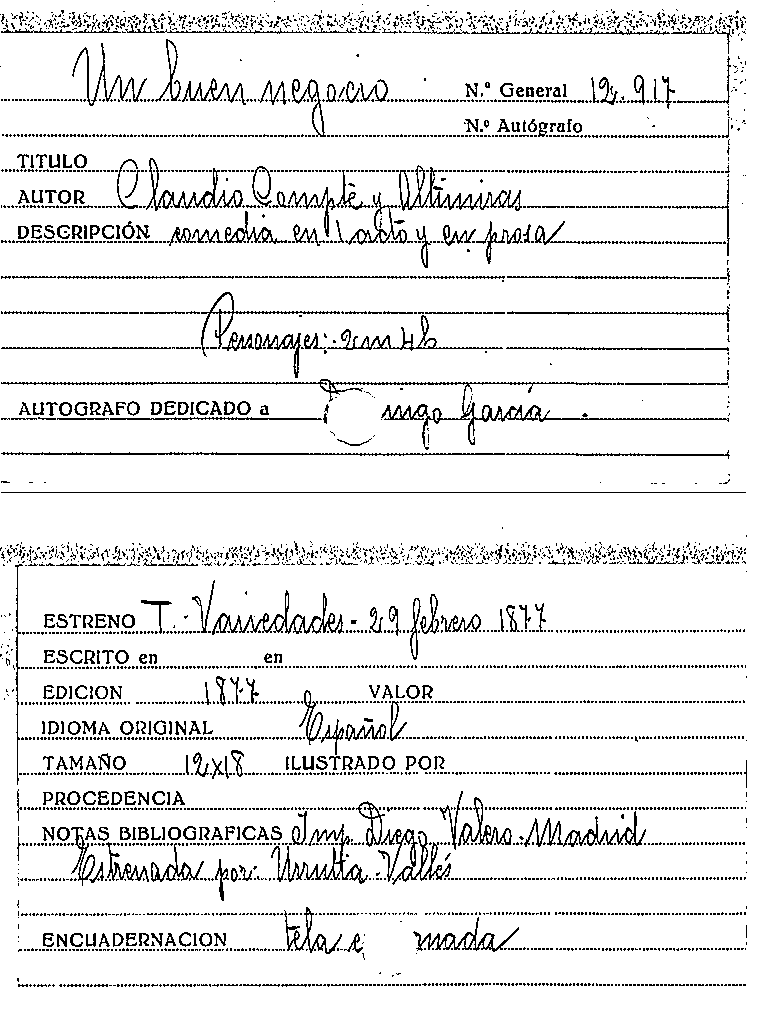 Un buen negocio N.º General 12.917
N.º Autógrafo
TITULO
AUTOR Claudio Compte y Altimiras
DESCRIPCIÓN comedia en 1 acto y en prosa
Personajes: 2m 4h
AUTOGRAFO DEDICADO a ingo García.
ESTRENO T. Variedades - 29 febrero 1877
ESCRITO en en
EDICION 1877 VALOR
IDIOMA ORIGINAL Español
TAMAÑO 12x18 ILUSTRADO POR
PROCEDENCIA
NOTAS BIBLIOGRAFICAS Imp. Diego Valero - Madrid
Estrenada por: Urrutia - Vallés
ENCUADERNACION tela e mada